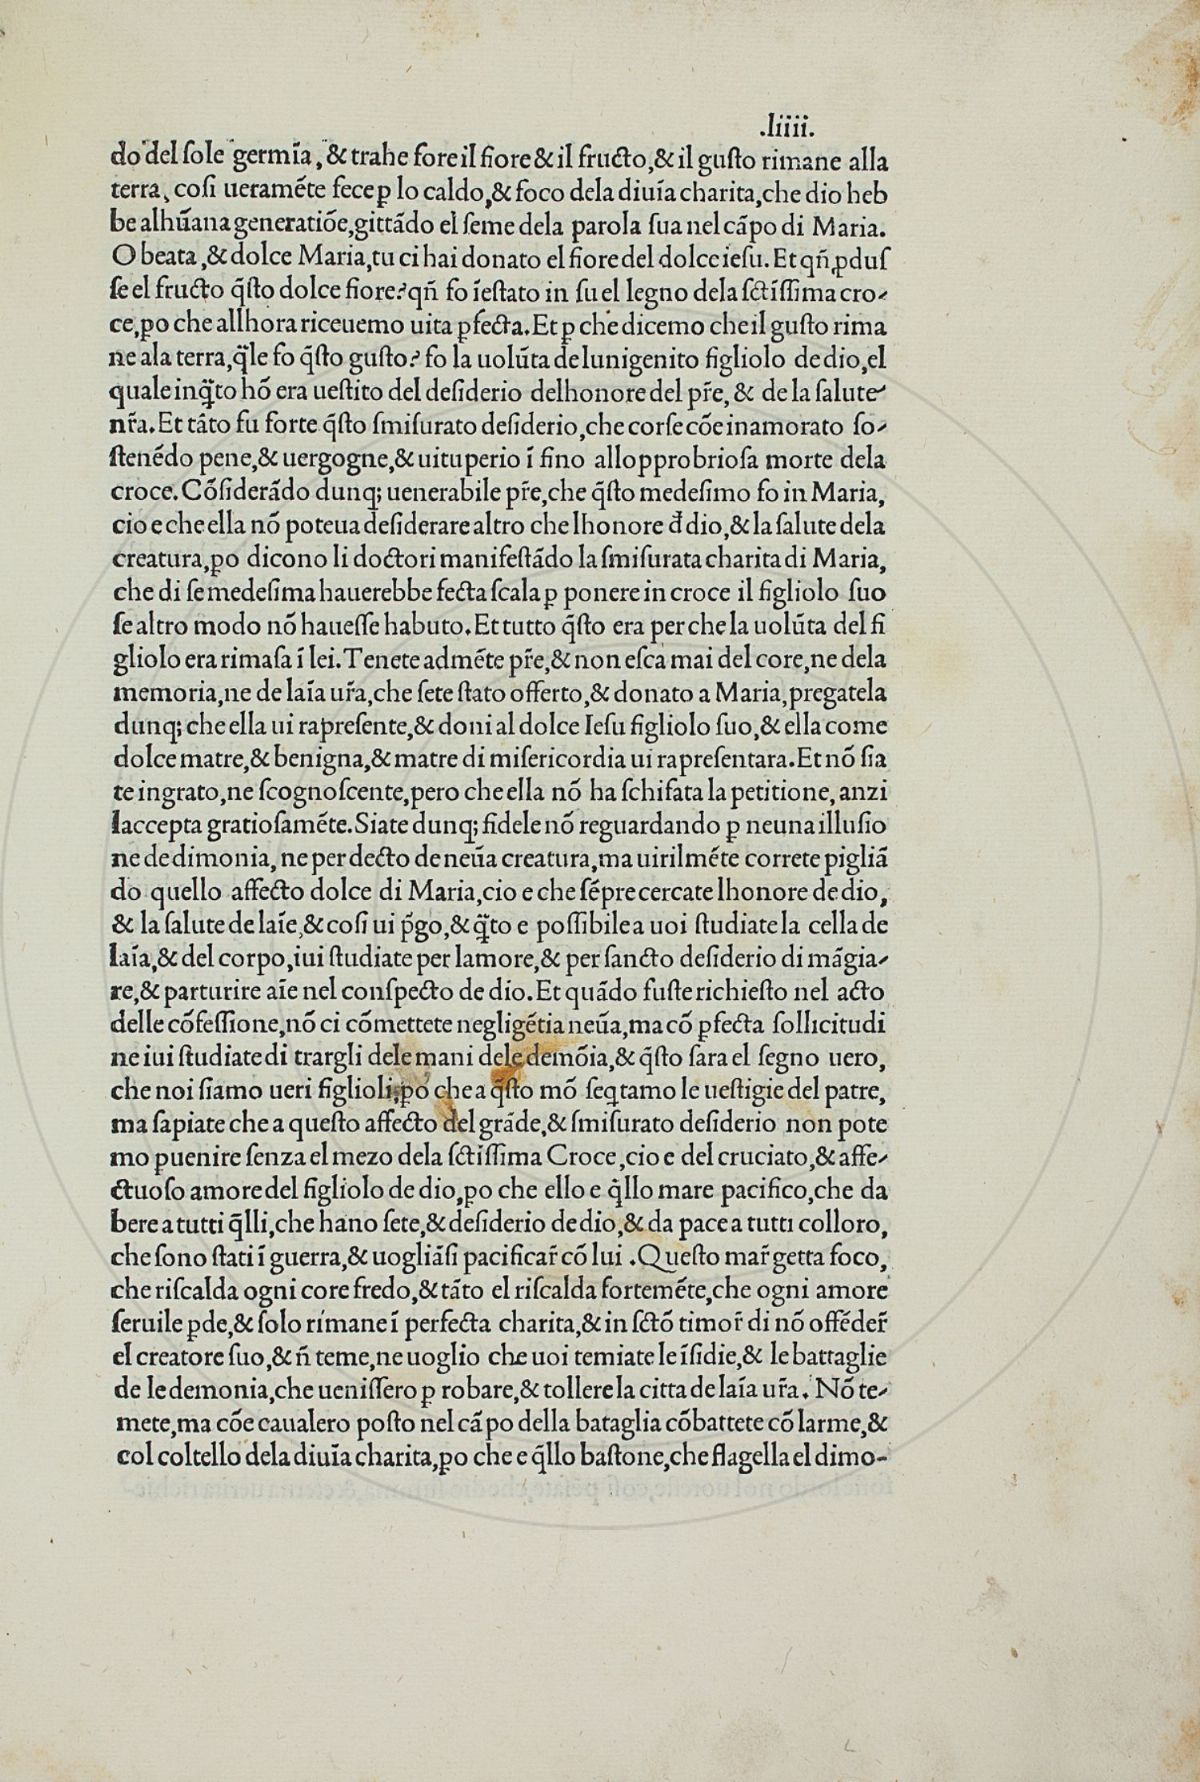 .liiii.
do del ſole germīa, & trahe fore il fiore & il fructo, & il guſto rimane alla
terra, coſi ueramēte fece ꝑ lo caldo, & foco dela diuīa charita, che dio heb
be alhūana generatiōe, gittādo el ſeme dela parola ſua nel cāpo di Maria.
O beata, & dolce Maria, tu ci hai donato el fiore del dolce ieſu. Et qñ ꝓduſ
ſe el fructo q̄ſto dolce fiore? qñ fo īeſtato in ſu el legno dela ſctīſſima cro-
ce, ꝑo che allhora riceuemo uita ꝑfecta. Et ꝑ che dicemo che il guſto rima
ne ala terra, q̄le fo q̄ſto guſto? fo la uolūta de lunigenito figliolo de dio, el
quale inq̄to hō era ueſtito del deſiderio delhonore del pr̄e, & de la ſalute
nr̄a. Et tāto fu forte q̄ſto ſmiſurato deſiderio, che corſe cōe inamorato ſo-
ſtenēdo pene, & uergogne, & uituperio ī fino allopprobrioſa morte dela
croce. Cōſiderādo dunq; uenerabile pr̄e, che q̄ſto medeſimo fo in Maria,
cio e che ella nō poteua deſiderare altro che lhonore đ dio, & la ſalute dela
creatura, ꝑo dicono li doctori manifeſtādo la ſmiſurata charita di Maria,
che di ſe medeſima hauerebbe fecta ſcala ꝑ ponere in croce il figliolo ſuo
ſe altro modo nō haueſſe habuto. Et tutto q̄ſto era per che la uolūta del fi
gliolo era rimaſa ī lei. Tenete admēte pr̄e, & non eſca mai del core, ne dela
memoria, ne de laīa ur̄a, che ſete ſtato offerto, & donato a Maria, pregatela
dunq; che ella ui rapreſente, & doni al dolce Ieſu figliolo ſuo, & ella come
dolce matre, & benigna, & matre di miſericordia ui rapreſentara. Et nō ſia
te ingrato, ne ſcognoſcente, pero che ella nō ha ſchifata la petitione, anzi
laccepta gratioſamēte. Siate dunq; fidele nō reguardando ꝑ neuna illuſio
ne de dimonia, ne per decto de neūa creatura, ma uirilmēte correte pigliā
do quello affecto dolce di Maria, cio e che ſēpre cercate lhonore de dio,
& la ſalute de laīe, & coſi ui p̄go, & q̄to e poſſibile a uoi ſtudiate la cella de
laīa, & del corpo, iui ſtudiate per lamore, & per ſancto deſiderio di māgia-
re, & parturire aīe nel conſpecto de dio. Et quādo fuſte richieſto nel acto
delle cōfeſſione, nō ci cōmettete negligētia neūa, ma cō ꝑfecta ſollicitudi
ne iui ſtudiate di trargli dele mani dele demōia, & q̄ſto ſara el ſegno uero,
che noi ſiamo ueri figlioli, ꝑo che a q̄ſto mō ſeq̄tamo le ueſtigie del patre,
ma ſapiate che a queſto affecto del grāde, & ſmiſurato deſiderio non pote
mo puenire ſenza el mezo dela ſctiſſima Croce, cio e del cruciato, & affe-
ctuoſo amore del figliolo de dio, ꝑo che ello e q̄llo mare pacifico, che da
bere a tutti q̄lli, che hano ſete, & deſiderio de dio, & da pace a tutti colloro,
che ſono ſtati ī guerra, & uogliāſi pacificar̄ cō lui . Queſto mar̄ getta foco,
che riſcalda ogni core fredo, & tāto el riſcalda fortemēte, che ogni amore
ſeruile ꝑde, & ſolo rimane ī perfecta charita, & in ſctō timor̄ di nō offēder̄
el creatore ſuo, & ñ teme, ne uoglio che uoi temiate le īſidie, & le battaglie
de le demonia, che ueniſſero ꝑ robare, & tollere la citta de laīa ur̄a. Nō te-
mete, ma cōe caualero poſto nel cāpo della bataglia cōbattete cō larme, &
col coltello dela diuīa charita, ꝑo che e q̄llo baſtone, che flagella el dimo-